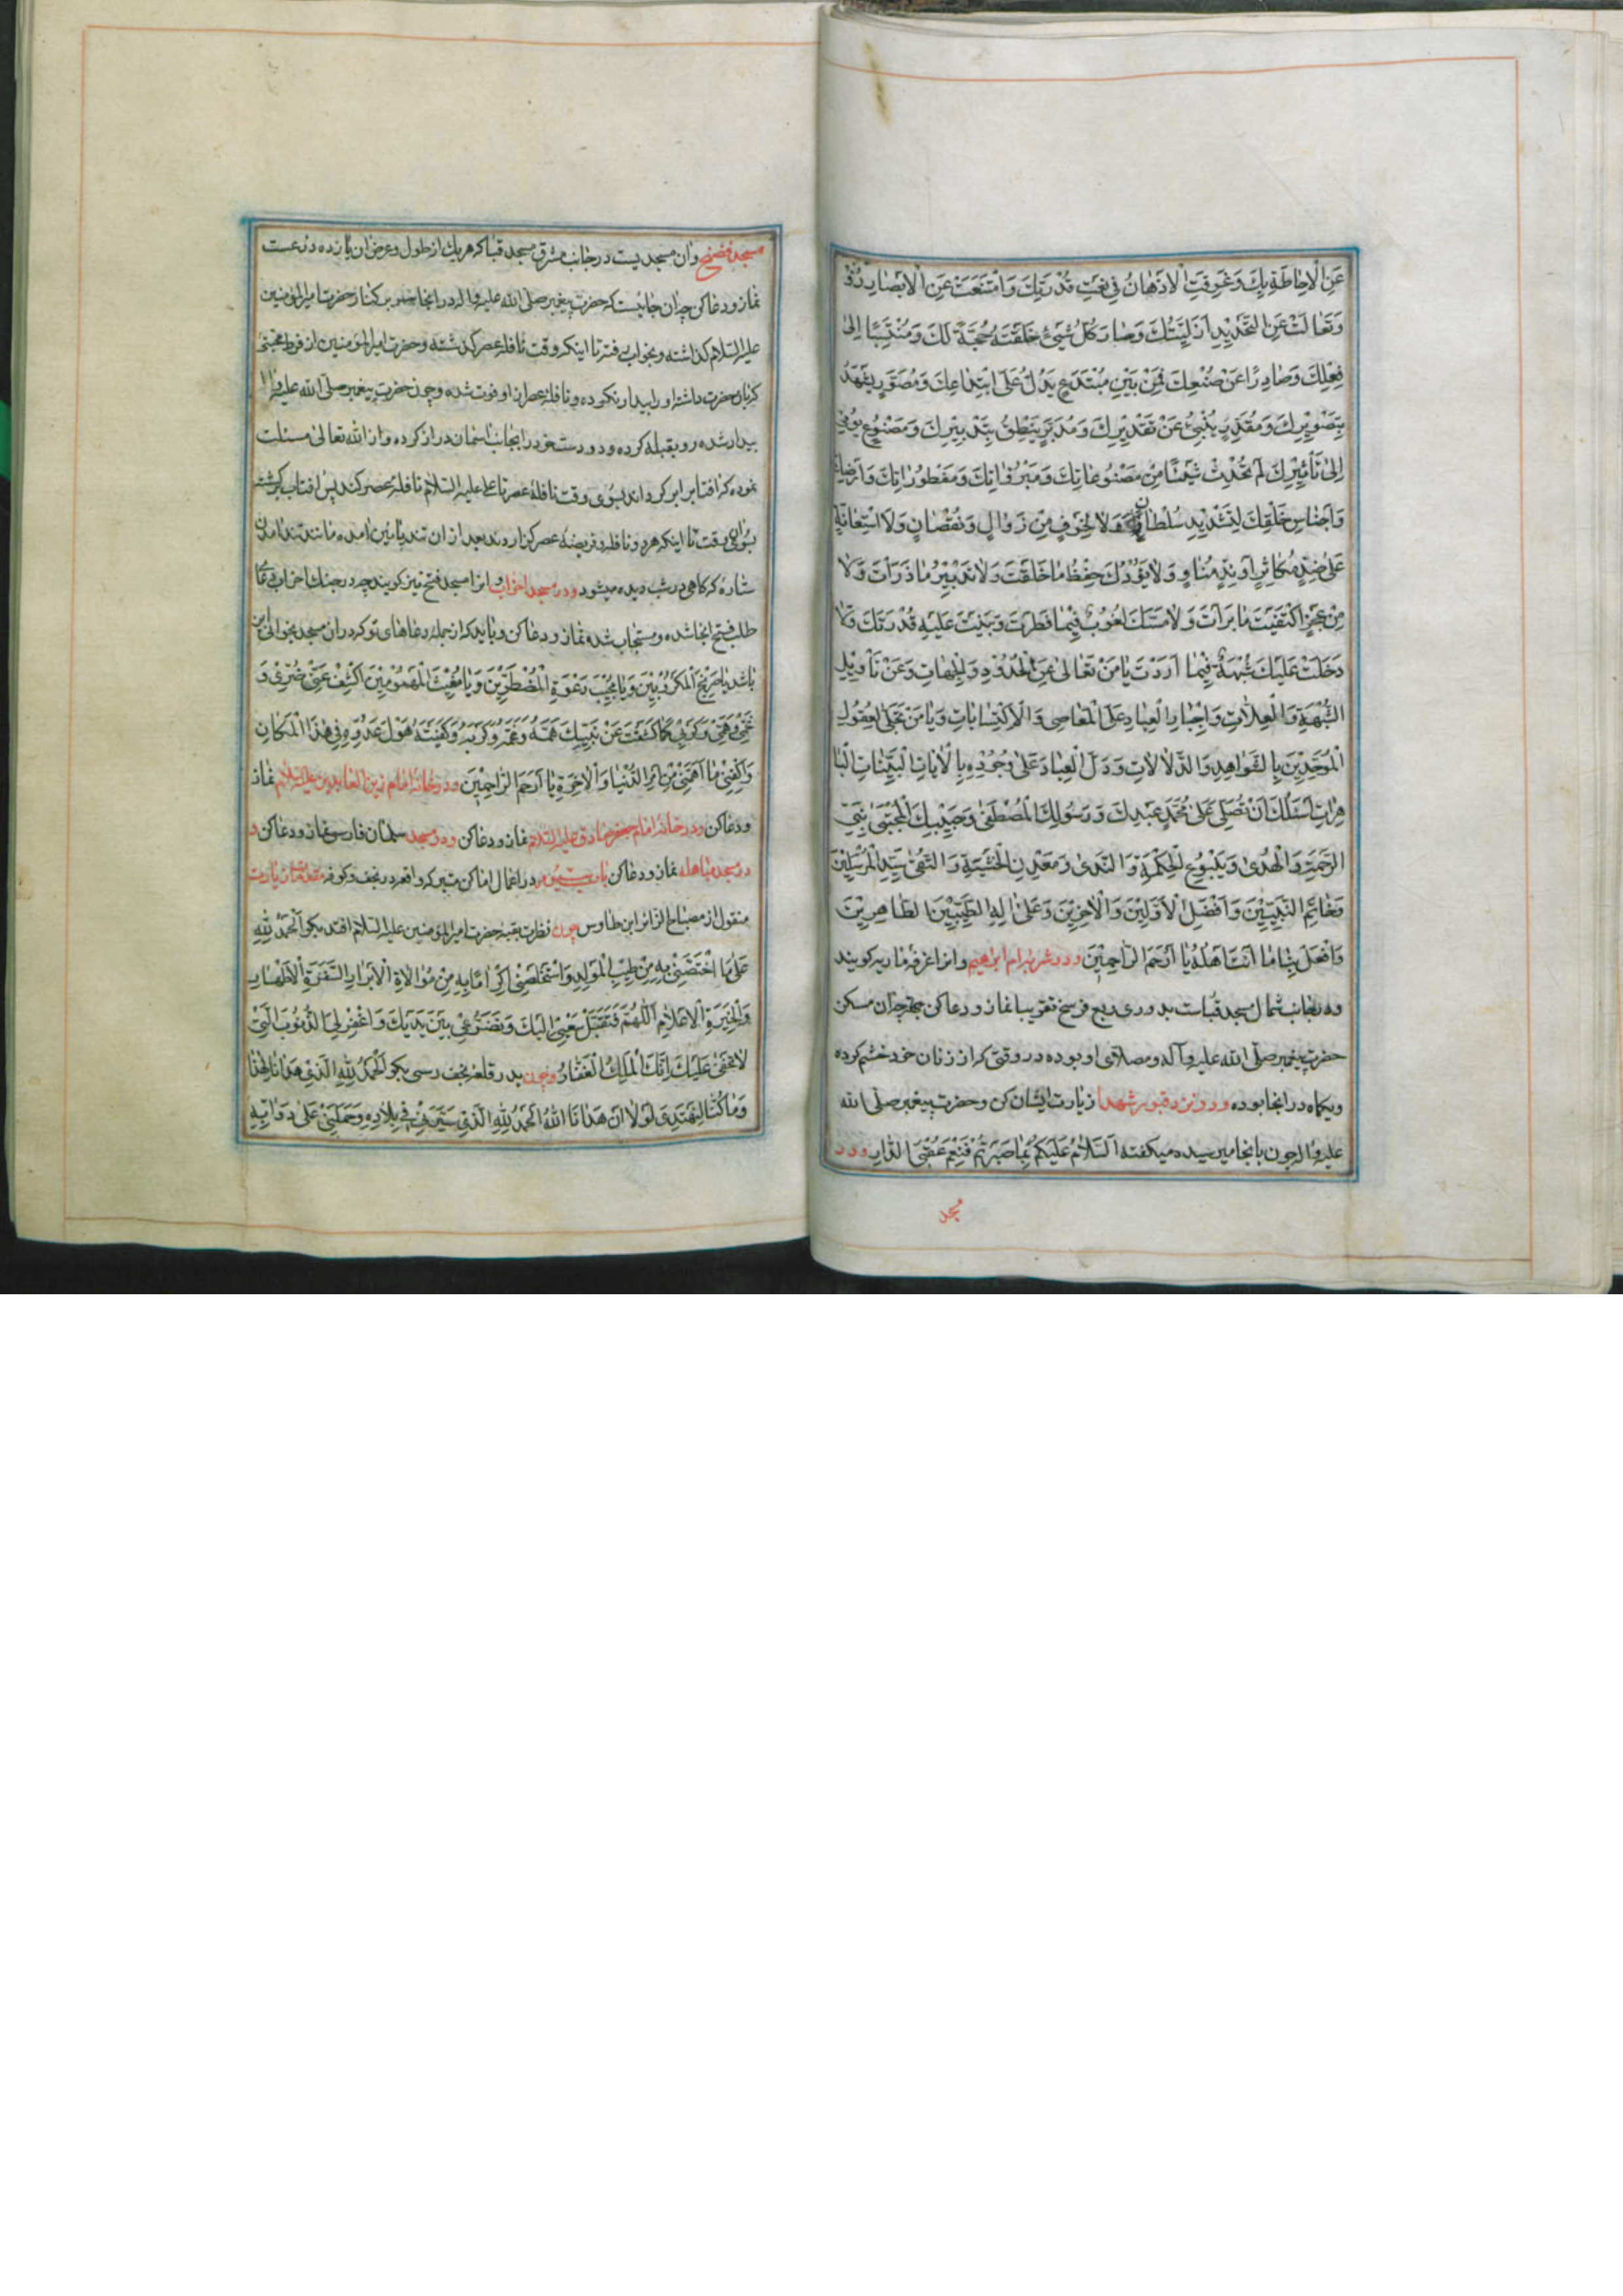 عَنِ الْاِحَاطَةِ بِكَ وَغَرِقَتِ الْاَذْهَانُ فِی نَعْتِ قُدْرَتِكَ وَامْتَنَعَتْ عَنِ الْاَبْصَارِ
وَتَعَالَتْ عَنِ التَّحْدِيدِ اَزَلِيَّتُكَ وَصَارَ كُلُّ شَيْئٍ خَلَقْتَهُ حُجَّةً لَكَ وَمُنْتَسِبًا اِلیٰ
فِعْلِكَ وَصَادِرًا عَنْ صُنْعِكَ فَمِنْ بَيْنِ مُبْتَدَعٍ يَدُلُّ عَلیٰ اِبْتِدَاعِكَ وَمُصَوَّرٍ يَشْهَدُ
بِتَصْوِيرِكَ وَمُقَدَّرٍ يُنْبِئُ عَنْ تَقْدِيْرِكَ وَمُدَبَّرٍ يَنْطِقُ بِتَدْبِيْرِكَ وَمَصْنُوعٍ يُومِیْ
اِلیٰ تَأْثِيْرِكَ لَمْ تُحْدِثْ شَيْئًا مِنْ مَصْنُوعَاتِكَ وَمَبْرُوَاتِكَ وَمَفْطُورَاتِكَ وَاَرَضِيْكَ
وَاَجْنَاسِ خَلْقِكَ لِتَشْدِيدِ سُلْطَانٍ وَلَا لِخَوْفٍ مِنْ زَوَالٍ وَنُقْصَانٍ وَلَا اسْتِعَانَةٍ
عَلیٰ ضِدٍّ مُكَاثِرٍ اَوْ نِدٍّ مُنَاوٍ وَلَا يَؤُدُكَ حِفْظُ مَا خَلَقْتَ وَلَا تَدْبِيْرُ مَا ذَرَاْتَ وَلَا
مِنْ عَجْزٍ اكْتَفَيْتَ مَا بَرَاْتَ وَلَا مَسَّكَ لُغُوبٌ فِيْمَا فَطَرْتَ وَبَنَيْتَ عَلَيْهِ قُدْرَتَكَ وَلَا
دَخَلَتْ عَلَيْكَ شُبْهَةٌ فِيْمَا اَرَدْتَ يَا مَنْ تَعَالیٰ عَنِ الْحُدُوْدِ وَالْجِهَاتِ وَعَنْ تَأْوِيْلِ
الشُّبْهَةِ وَالْعِلَّاتِ وَاِجْبَارِ الْعِبَادِ عَلَی الْمَعَاصِی وَالْاِكْتِسَابَاتِ وَيَا مَنْ تَجَلّیٰ لِعُقُولِ
الْمُوَحِّدِيْنَ بِالشَّوَاهِدِ وَالدَّلَالَاتِ وَدَلَّ الْعِبَادَ عَلیٰ وُجُوْدِهِ بِالْاٰيَاتِ الْبَيِّنَاتِ الْبَا
هِرَاتِ اَسْئَلُكَ اَنْ تُصَلِّیَ عَلیٰ مُحَمَّدٍ عَبْدِكَ وَرَسُولِكَ الْمُصْطَفیٰ وَحَبِيْبِكَ الْمُجْتَبیٰ نَبِیِّ
الرَّحْمَةِ وَالْهُدیٰ وَيَنْبُوعِ الْحِكْمَةِ وَالنَّدیٰ وَمَعْدِنِ الْخَشْيَةِ وَالتُّقیٰ سَيِّدِ الْمُرْسَلِيْنَ
وَخَاتَمِ النَّبِيِّيْنَ وَاَفْضَلِ الْاَوَّلِيْنَ وَالْاٰخِرِيْنَ وَعَلیٰ اٰلِهِ الطَّيِّبِيْنَ الطَّاهِرِيْنَ
وَافْعَلْ بِنَا مَا اَنْتَ اَهْلُهُ يَا اَرْحَمَ الرَّاحِمِيْنَ ودر مشربه ام ابراهيم وانرا غرفه ماريه كويند
ودر جانب شمال مسجد قباست بدوری ربع فرسخ تقريبا نماز ودعا كن جهة آن مسكن
حضرت پيغمبر صلّی الله عليه وآله ومصلّای او بوده در وقتی كه از زنان خود خشم كرده
ويكماه در انجا بوده ودر نزد قبور شهدا زيارت ايشان كن وحضرت پيغمبر صلّی الله
عليه واله چون بانجا ميرسيده ميكفته اَلسَّلَامُ عَلَيْكُمْ بِمَا صَبَرْتُمْ فَنِعْمَ عُقْبَی الدَّارِ ودر
مسجد
مسجد فضيخ وان مسجديست در جانب مشرق مسجد قبا كه هر يك از طول وعرض ان يازده ذرعست
نماز ودعا كن چه آن جائيست كه حضرت پيغمبر صلّی الله عليه واله در انجا سر بر كنار حضرت امير المؤمنين
عليه السّلام كذاشته وبخواب رفته تا اينكه وقت نافله عصر كذشته وحضرت امير المؤمنين از فرط محبّتی
كه بان حضرت داشته او را بيدار نكرده ونافله عصر از او فوت شده وچون حضرت پيغمبر صلّی الله عليه واله
بيدار شده رو بقبله كرده ودو دست خود را بجانب اسمان دراز كرده واز الله تعالی مسئلت
نموده كه افتاب را بر كرداند بسوی وقت نافلهٔ عصر تا علی عليه السّلام نافله عصر كند پس افتاب بركشته
بسوی وقت تا اينكه هر دو نافله وفريضهٔ عصر كذاردند بعد از ان تند پايين امده مانند تند امدن
ستاره كه كاهی در شب ديده ميشود ودر مسجد احزاب وانرا مسجد فتح نيز كويند چه در جنك احزاب دعای
طلب فتح انجا شده ومستجاب شده نماز ودعا كن وبايد كه از جمله دعاهای تو كه در ان مسجد بخوانی اين
باشد يَا صَرِيْخَ الْمَكْرُوْبِيْنَ وَيَا مُجِيْبَ دَعْوَةِ الْمُضْطَرِّيْنَ وَيَا مُغِيْثَ الْمَهْمُوْمِيْنَ اكْشِفْ عَنِّیْ ضُرِّیْ وَ
غَمِّیْ وَهَمِّیْ وَكَرْبِیْ كَمَا كَشَفْتَ عَنْ نَبِيِّكَ هَمَّهُ وَغَمَّهُ وَكَرْبَهُ وَكَفَيْتَهُ هَوْلَ عَدُوِّهِ فِی هٰذَا الْمَكَانِ
وَاكْفِنِیْ مَا اَهَمَّنِیْ مِنْ اَمْرِ الدُّنْيَا وَالْاٰخِرَةِ يَا اَرْحَمَ الرَّاحِمِيْنَ ودر خانه امام زين العابدين عليه السّلام نماز
ودعا كن ودر خانه امام جعفر صادق عليه السّلام نماز ودعا كن ودر مسجد سلمان فارسی نماز ودعا كن و
در مسجد مباهله نماز ودعا كن باب بيست وسيّم در اعمال اماكن متبركه واقعه در نجف وكوفه زيارت
منقول از مصباح الزائر ابن طاوس چون نظرت بقبّه حضرت امير المؤمنين عليه السّلام افتد بكو اَلْحَمْدُ لِلّٰهِ
عَلیٰ مَا اخْتَصَّنِیْ بِهِ مِنْ طِيْبِ الْمَوْلِدِ وَاسْتَخْلَصَنِیْ اِكْرَامًا بِهِ مِنْ مُوَالَاةِ الْاَبْرَارِ السَّفَرَةِ الْاَطْهَارِ
وَالْخِيَرَةِ الْاَعْلَامِ اَللّٰهُمَّ فَتَقَبَّلْ سَعْيِیْ اِلَيْكَ وَتَضَرُّعِیْ بَيْنَ يَدَيْكَ وَاغْفِرْ لِیَ الذُّنُوْبَ الَّتِیْ
لَا تَخْفیٰ عَلَيْكَ اِنَّكَ الْمَلِكُ الْغَفَّارُ وچون بدر قلعه نجف رسی بكو اَلْحَمْدُ لِلّٰهِ الَّذِیْ هَدَانَا لِهٰذَا
وَمَا كُنَّا لِنَهْتَدِیَ لَوْلَا اَنْ هَدَانَا اللّٰهُ اَلْحَمْدُ لِلّٰهِ الَّذِیْ سَيَّرَنِیْ فِیْ بِلَادِهِ وَحَمَلَنِیْ عَلیٰ دَوَابِّهِ